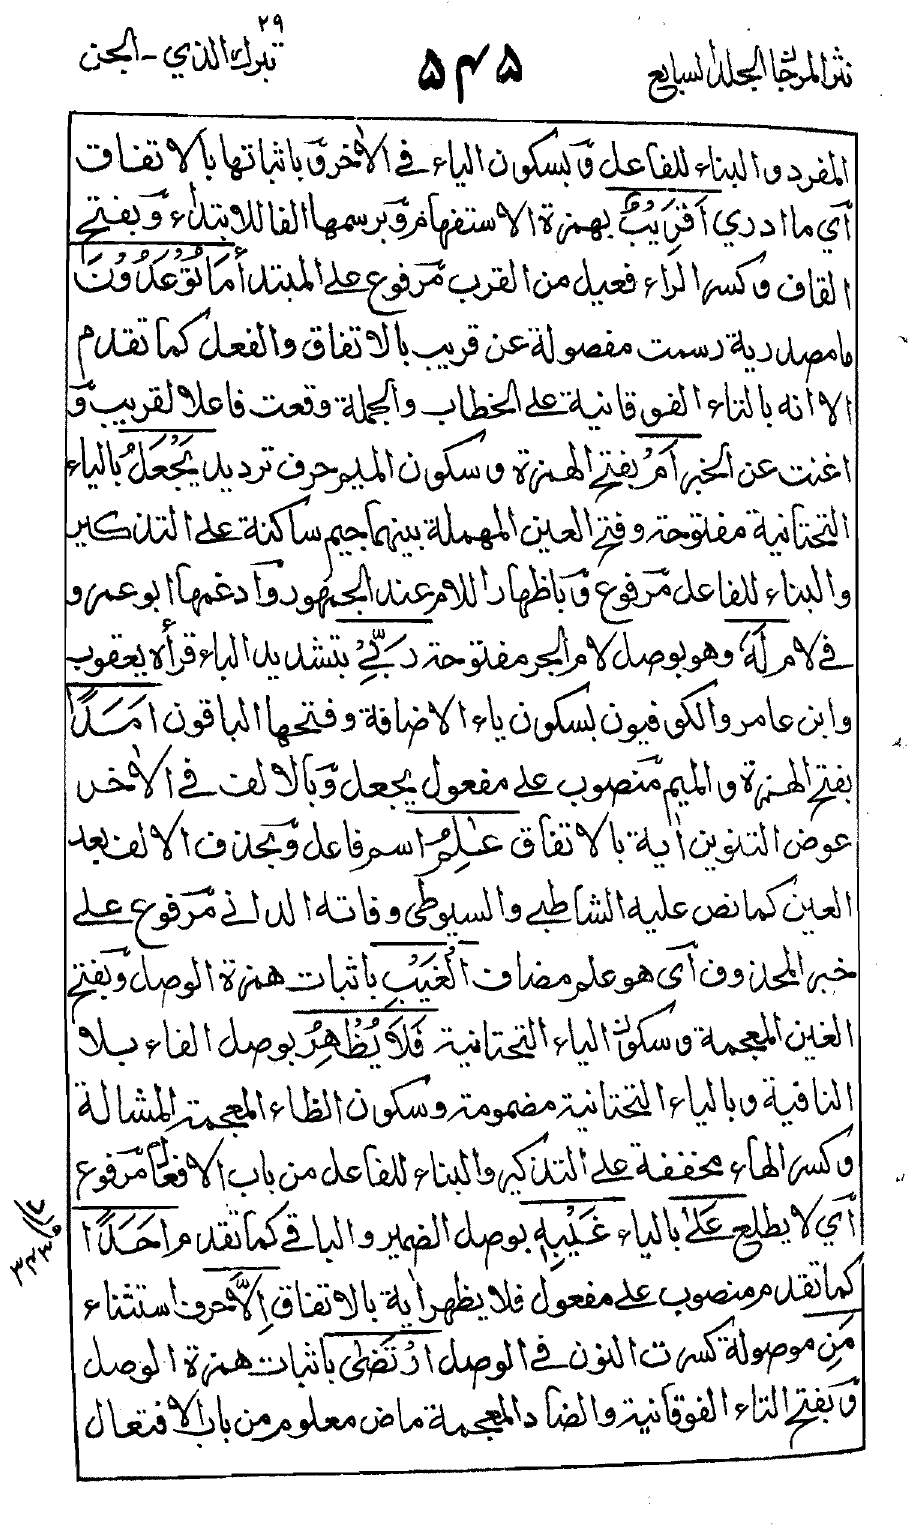 ٢٩
نثر المرجان المجلد السابع
۵۴۵
تبرك الذي - الجن
المفرد والبناء للفاعل وَبسكون الياء في الاٰخر وَباثباتها بالاتفاق
آي ما ادري اَقَرِيْبٌ بهمزة الاستفهام وَبرسمها الفا للابتداء وَبفتح
القاف وكسر الراء فعيل من القرب مَرفوع على المبتدأ مَا تُوْعَدُوْنَ
ما مصدرية رسمت مفصولة عن قريب بالاتفاق والفعل كما تقدم
الا انه بالتاء الفوقانية على الخطاب والجملة وقعت فاعلا لقريب وَ
اغنت عن الخبر اَمْ بفتح الهمزة وسكون الميم حرف ترديد يَجْعَلُ بالياء
التحتانية مفتوحة وفتح العين المهملة بينهما جيم ساكنة على التذكير
والبناء للفاعل مَرفوع وَباظهار اللام عند الجمهور وَآدغمها ابو عمرو
في لام لَهٗ وهو بوصل لام الجر مفتوحة رَبِّيْ بتشديد الباء قرأه يعقوب
وابن عامر والكوفيون بسكون ياء الاضافة وفتحها الباقون اَمَدًا
بفتح الهمزة والميم مَنصوب على مفعول يجعل وَبالالف في الاٰخر
عوض التنوين اٰية بالاتفاق عٰلِمُ اسم فاعل وَبحذف الالف بعد
العين كما نص عليه الشاطبي والسيوطي وفاته الداني مَرفوع على
خبر المحذوف آى هو علم مضاف الْغَيْبِ باثبات همزة الوصل وَبفتح
الغين المعجمة وسكون الياء التحتانية فَلَا يُظْهِرُ بوصل الفاء بلا
النافية وبالياء التحتانية مضمومة وسكون الظاء المعجمة المشالة
وكسر الهاء مخففة على التذكير والبناء للفاعل من باب الافعال مَرفوع
آي لا يطلع عَلٰى بالياء غَيْبِهٖ بوصل الضمير والباقي كما تقدم اَحَدًا
كما تقدم منصوب على مفعول فلا يظهر اٰية بالاتفاق اِلَّا حرف استثناء
مَنِ موصولة كسرت النون في الوصل ارْتَضٰى باثبات همزة الوصل
وَبفتح التاء الفوقانية والضاد المعجمة ماض معلوم من باب الافتعال